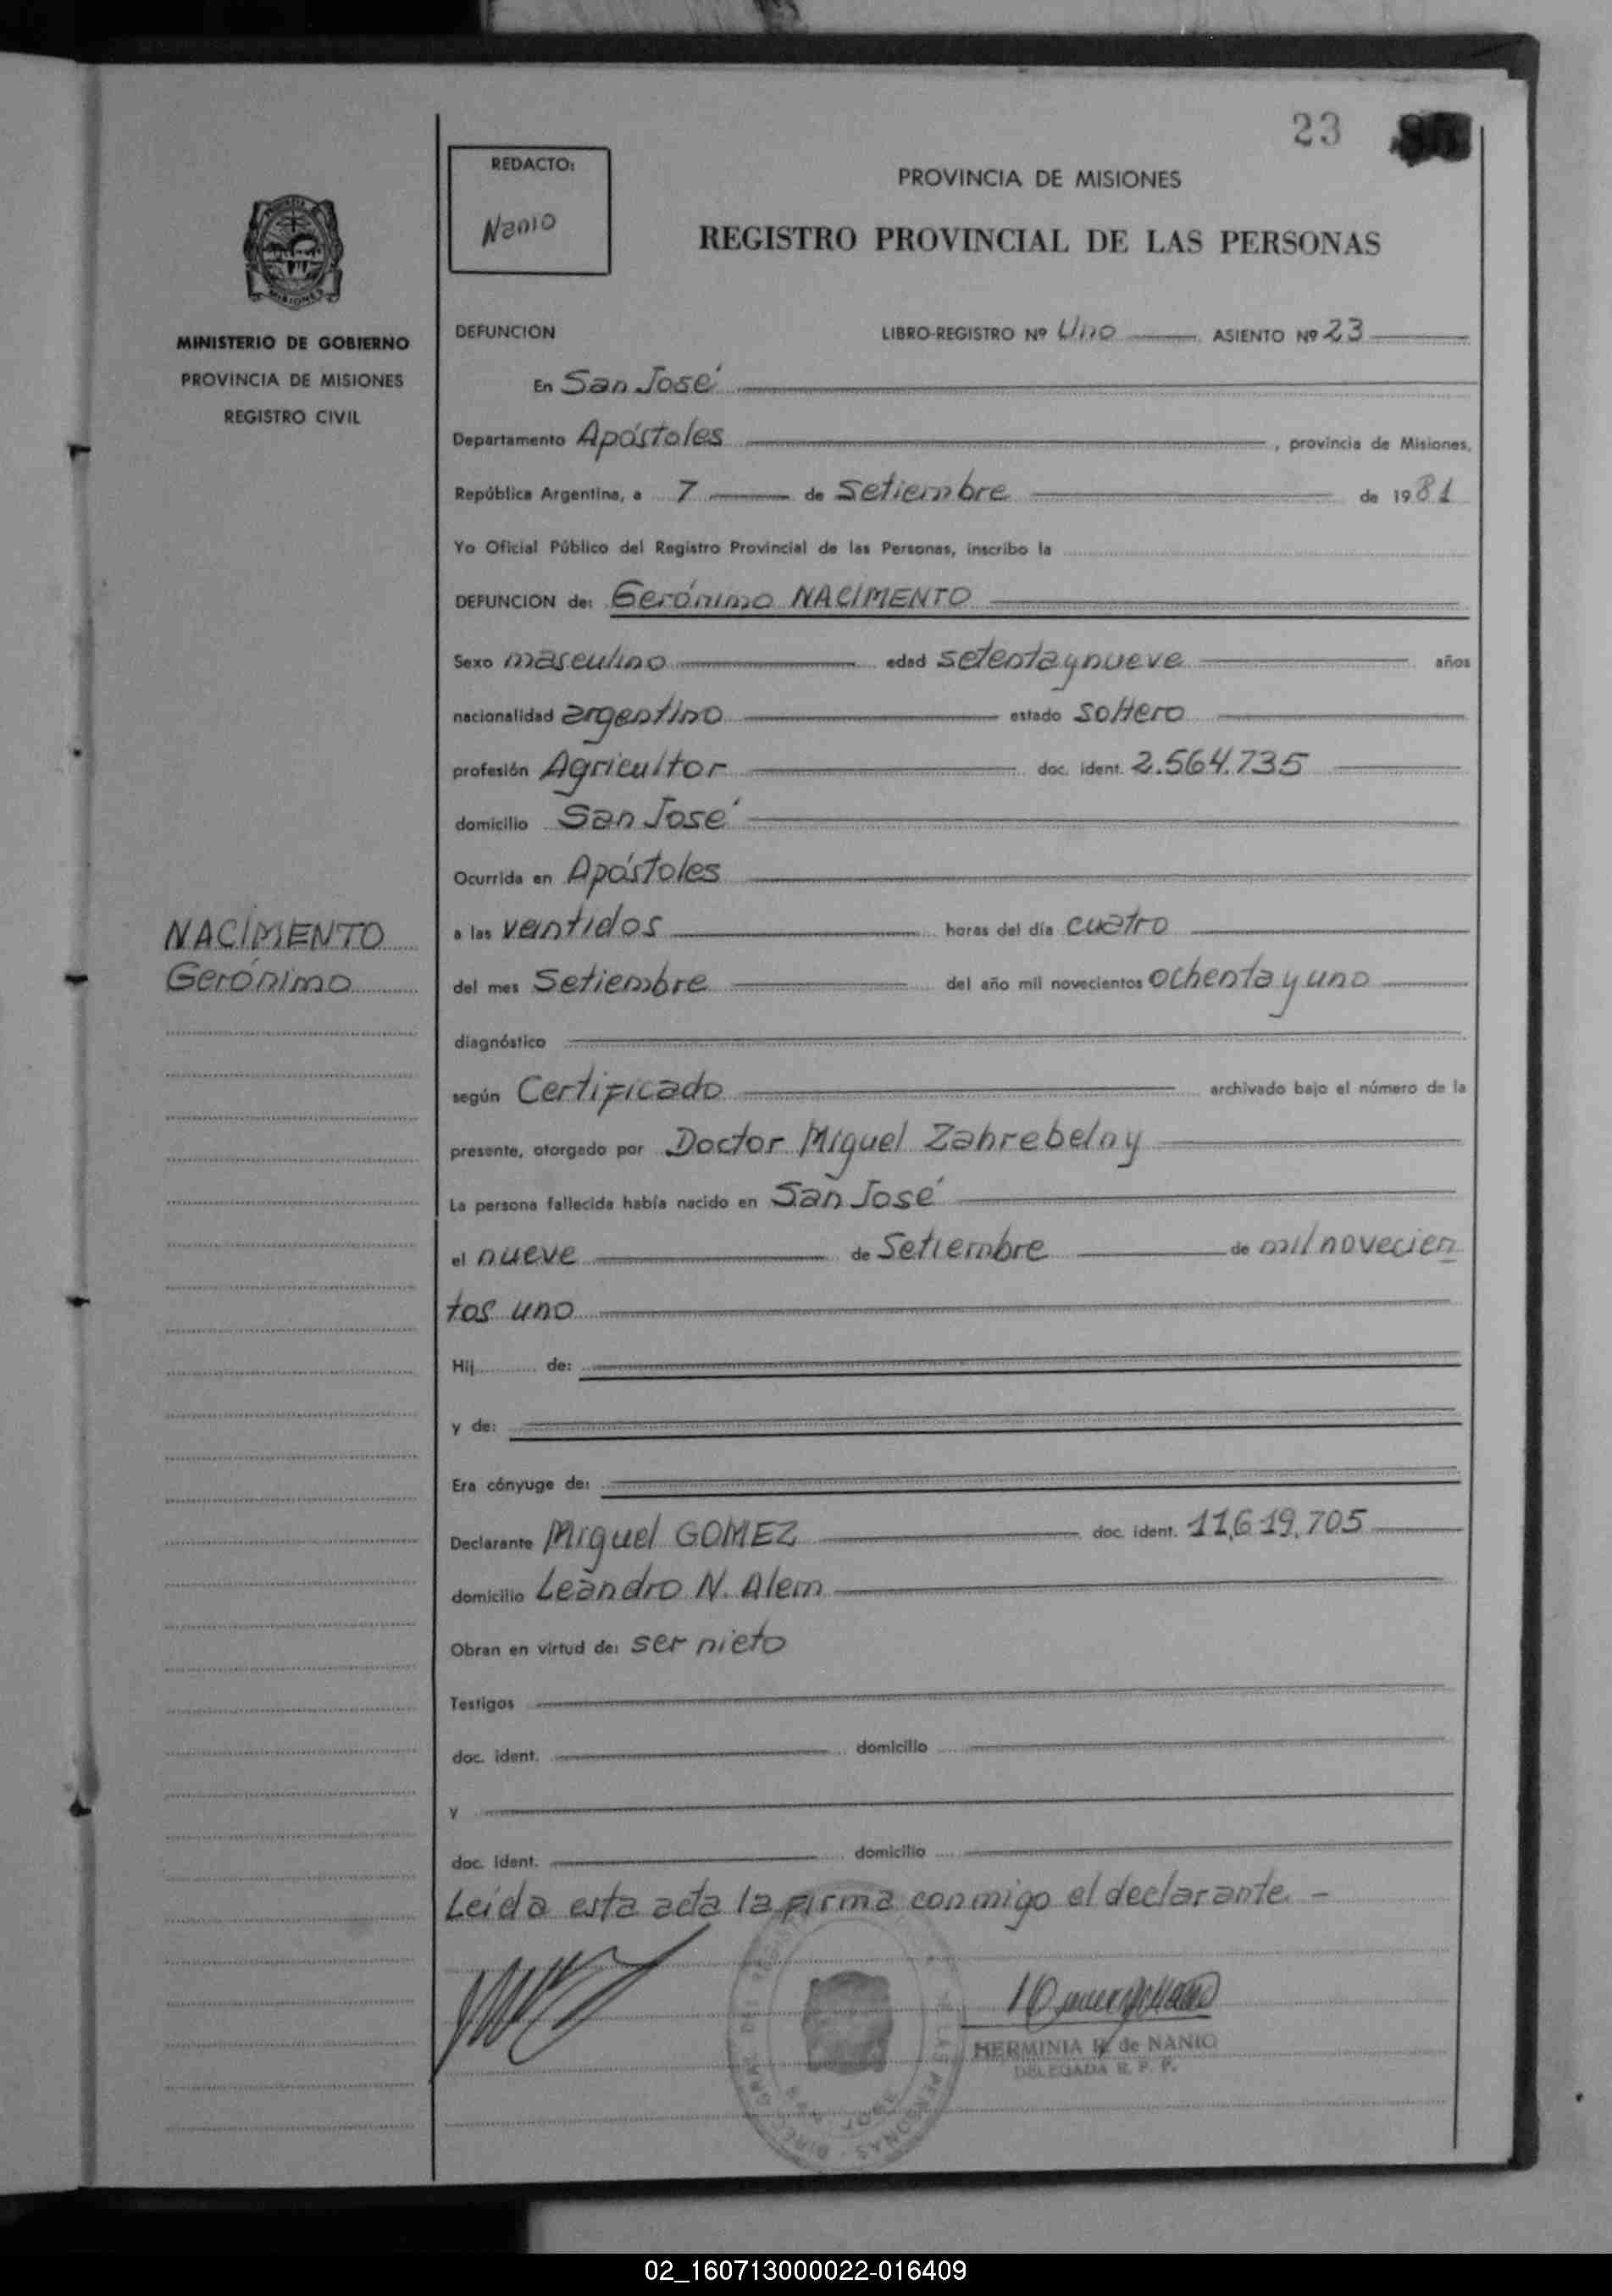 23
REDACTO:
Nanio
PROVINCIA DE MISIONES
REGISTRO PROVINCIAL DE LAS PERSONAS
MINISTERIO DE GOBIERNO
PROVINCIA DE MISIONES
REGISTRO CIVIL
DEFUNCION LIBRO-REGISTRO Nº Uno ASIENTO Nº 23
En San José
Departamento Apóstoles, provincia de Misiones,
República Argentina, a 7 de Setiembre de 1981
Yo Oficial Público del Registro Provincial de las Personas, inscribo la
DEFUNCION de: Gerónimo NACIMENTO
Sexo masculino edad setenta y nueve años
nacionalidad argentino estado soltero
profesión Agricultor doc. ident. 2.564.735
domicilio San José
Ocurrida en Apóstoles
NACIMENTO
Gerónimo
a las veintidos horas del día cuatro
del mes Setiembre del año mil novecientos ochenta y uno
diagnóstico
según Certificado archivado bajo el número de la
presente, otorgado por Doctor Miguel Zahrebelny
La persona fallecida había nacido en San José
el nueve de Setiembre de mil novecien
tos uno
Hij de:
y de:
Era cónyuge de:
Declarante Miguel GOMEZ doc. ident. 11.619.705
domicilio Leandro N. Alem
Obran en virtud de: ser nieto
Testigos
doc. ident. domicilio
y
doc. ident. domicilio
Leida esta acta la firma conmigo el declarante. -
HERMINIA de NANIO
DELEGADA R. P. P.
02_160713000022-016409